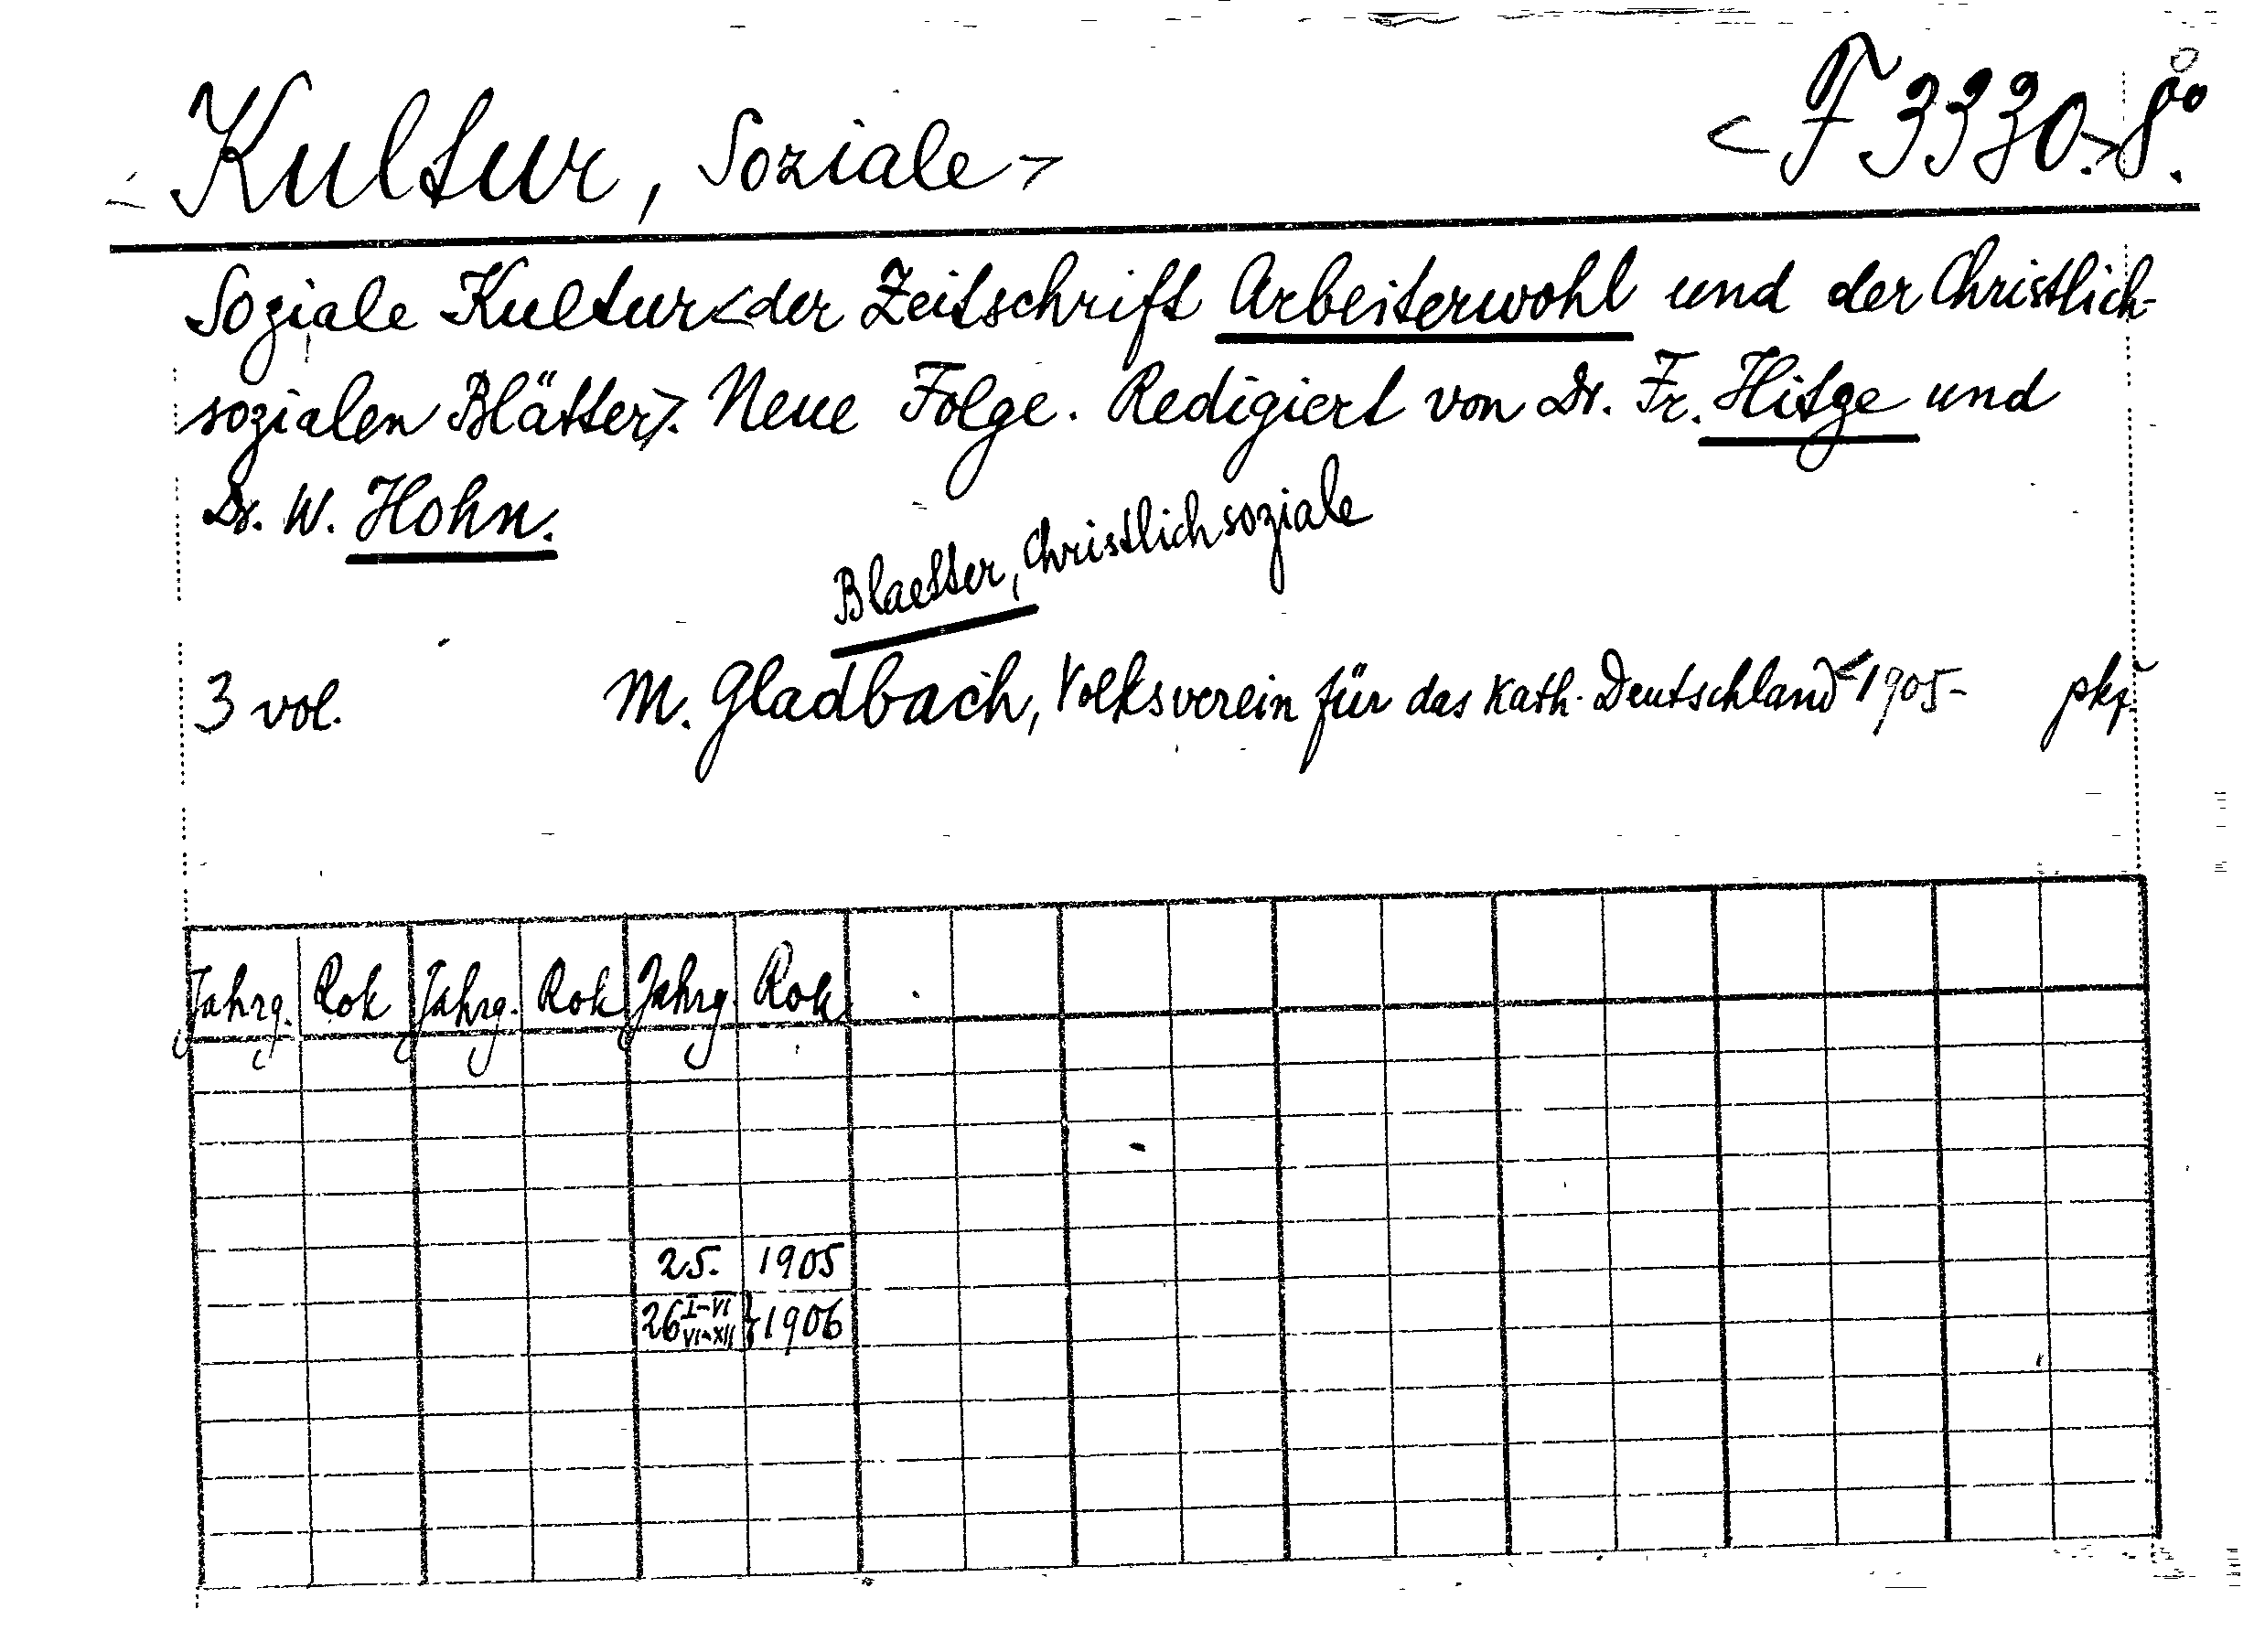 Kultur, Soziale > < F 3330.> 8°.
Soziale Kultur <der Zeitschrift Arbeiterwohl und der Christlich-
sozialen Blätter>. Neue Folge. Redigiert von Dr. Fr. Hitze und
Dr. W. Hohn.
Blaetter, Christlichsoziale
3 vol. M. Gladbach, Volksverein für das kath. Deutschland < 1905-
Jahrg. Rok Jahrg. Rok Jahrg. Rok
25. 1905
26 I-VI VI-XII } 1906